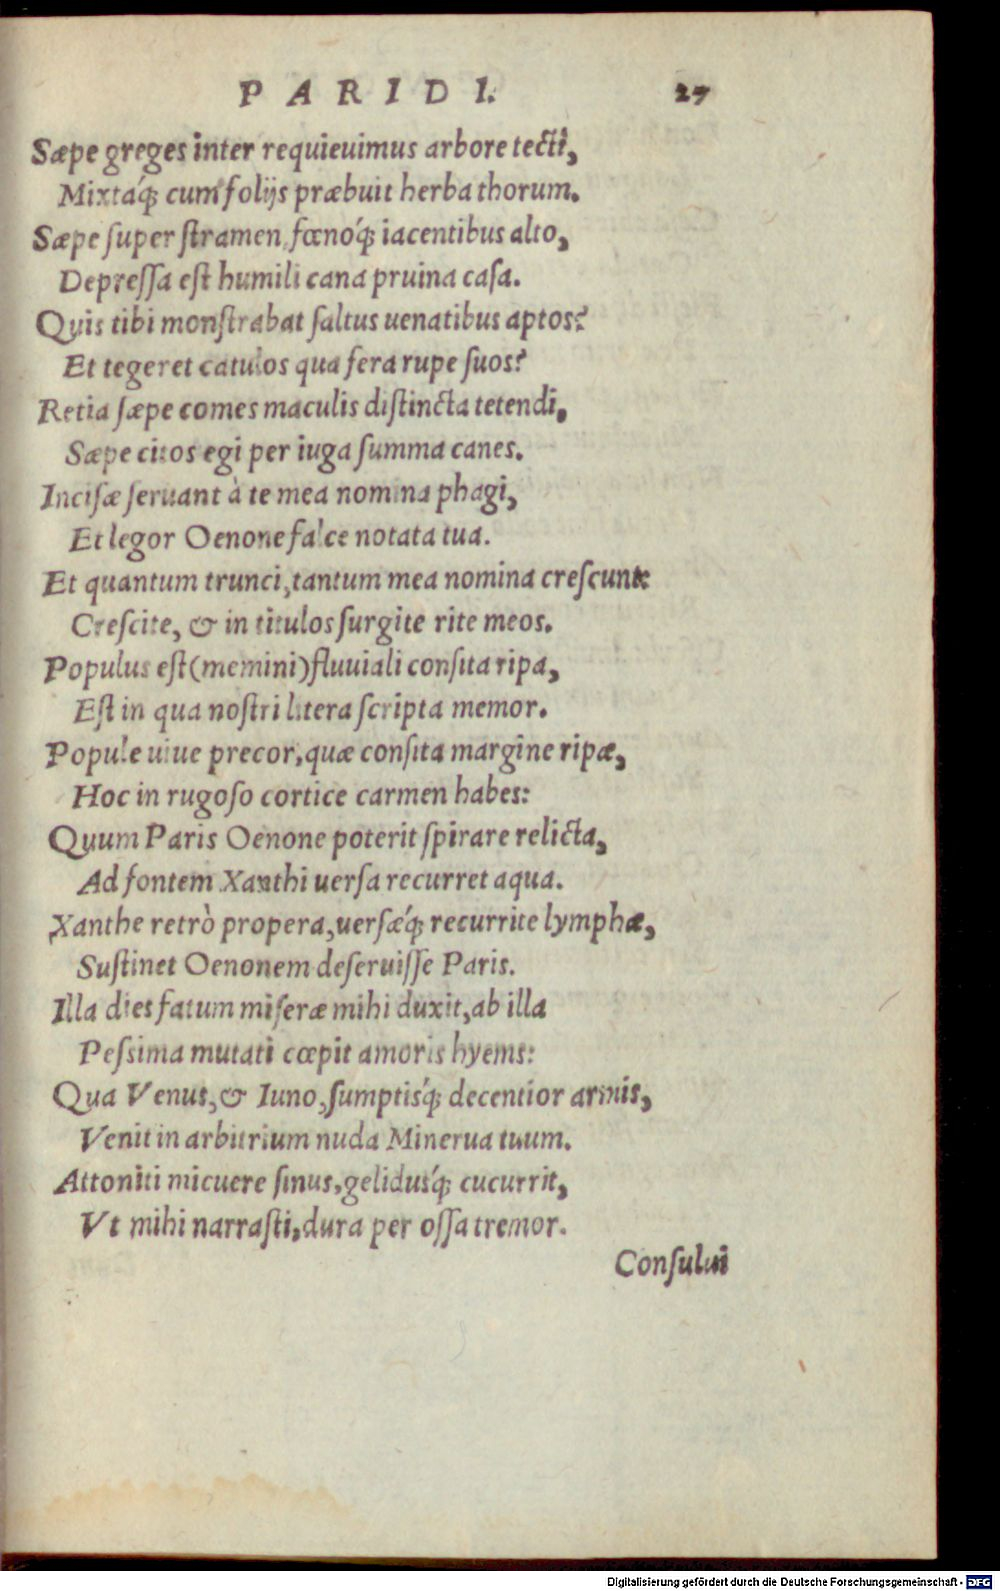 PARIDI. 27
Sæpe greges inter requieuimus arbore tecti,
Mixtáq́; cum folijs præbuit herba thorum.
Sæpe ſuper ſtramen fœnóq́; iacentibus alto,
Depreſſa eſt humili cana pruina caſa.
Quis tibi monſtrabat ſaltus uenatibus aptos?
Et tegeret catulos qua fera rupe ſuos?
Retia ſæpe comes maculis diſtincta tetendi,
Sæpe citos egi per iuga ſumma canes.
Inciſæ ſeruant à te mea nomina phagi,
Et legor Oenone falce notata tua.
Et quantum trunci, tantum mea nomina creſcunt:
Creſcite, & in titulos ſurgite rite meos.
Populus eſt (memini) fluuiali conſita ripa,
Eſt in qua noſtri litera ſcripta memor.
Popule uiue precor, quæ conſita margine ripæ,
Hoc in rugoſo cortice carmen habes:
Quum Paris Oenone poterit ſpirare relicta,
Ad fontem Xanthi uerſa recurret aqua.
Xanthe retrò propera, uerſæq́; recurrite lymphæ,
Suſtinet Oenonem deſeruiſſe Paris.
Illa dies fatum miſeræ mihi duxit, ab illa
Peſsima mutati cœpit amoris hyems:
Qua Venus, & Iuno, ſumptisq́; decentior armis,
Venit in arbitrium nuda Minerua tuum.
Attoniti micuere ſinus, gelidusq́; cucurrit,
Vt mihi narraſti, dura per oſſa tremor.
Conſului
Digitalisierung gefördert durch die Deutsche Forschungsgemeinschaft - DFG